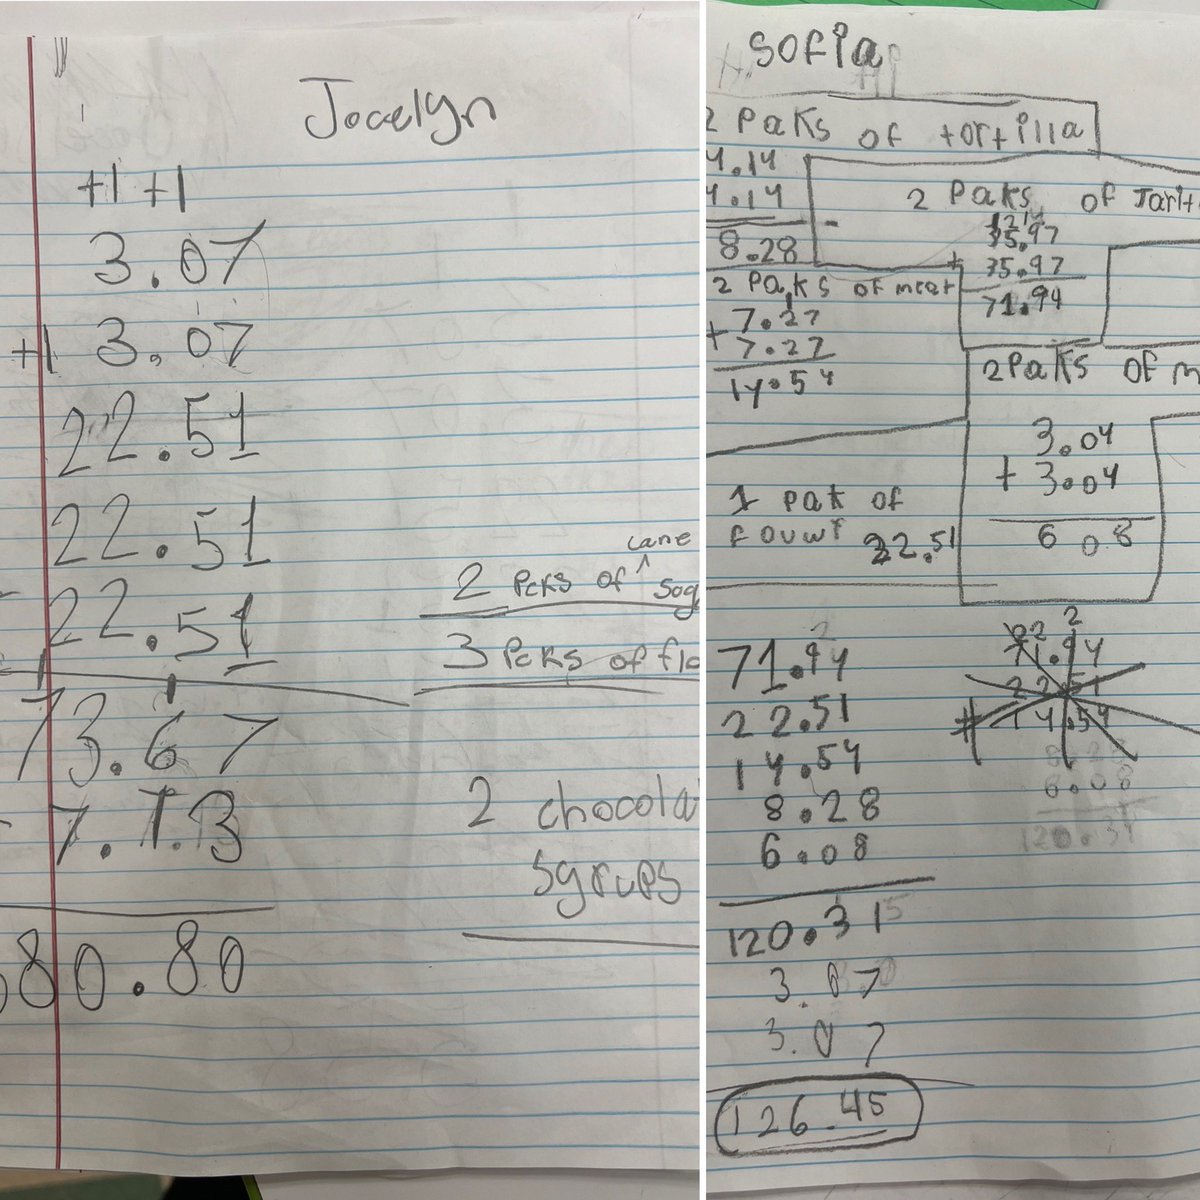 Jocelyn
+1 +1
3.07
+1 3.07
22.51
22.51
22.51
73.67
7.13
80.80
2 pcks of cane sog
3 pcks of flo
2 chocolat
sgrups
Sofia
2 Paks of tortilla
4.14
4.14
8.28
2 Paks of meat
+ 7.27
7.27
14.54
2 Paks of Jarit
35.97
+ 35.97
71.94
2 Paks of m
3.04
+ 3.04
6 0 8
1 pak of
fouwr 22.51
71.94
22.51
14.54
8.28
6.08
120.31
3.07
3.07
126.45